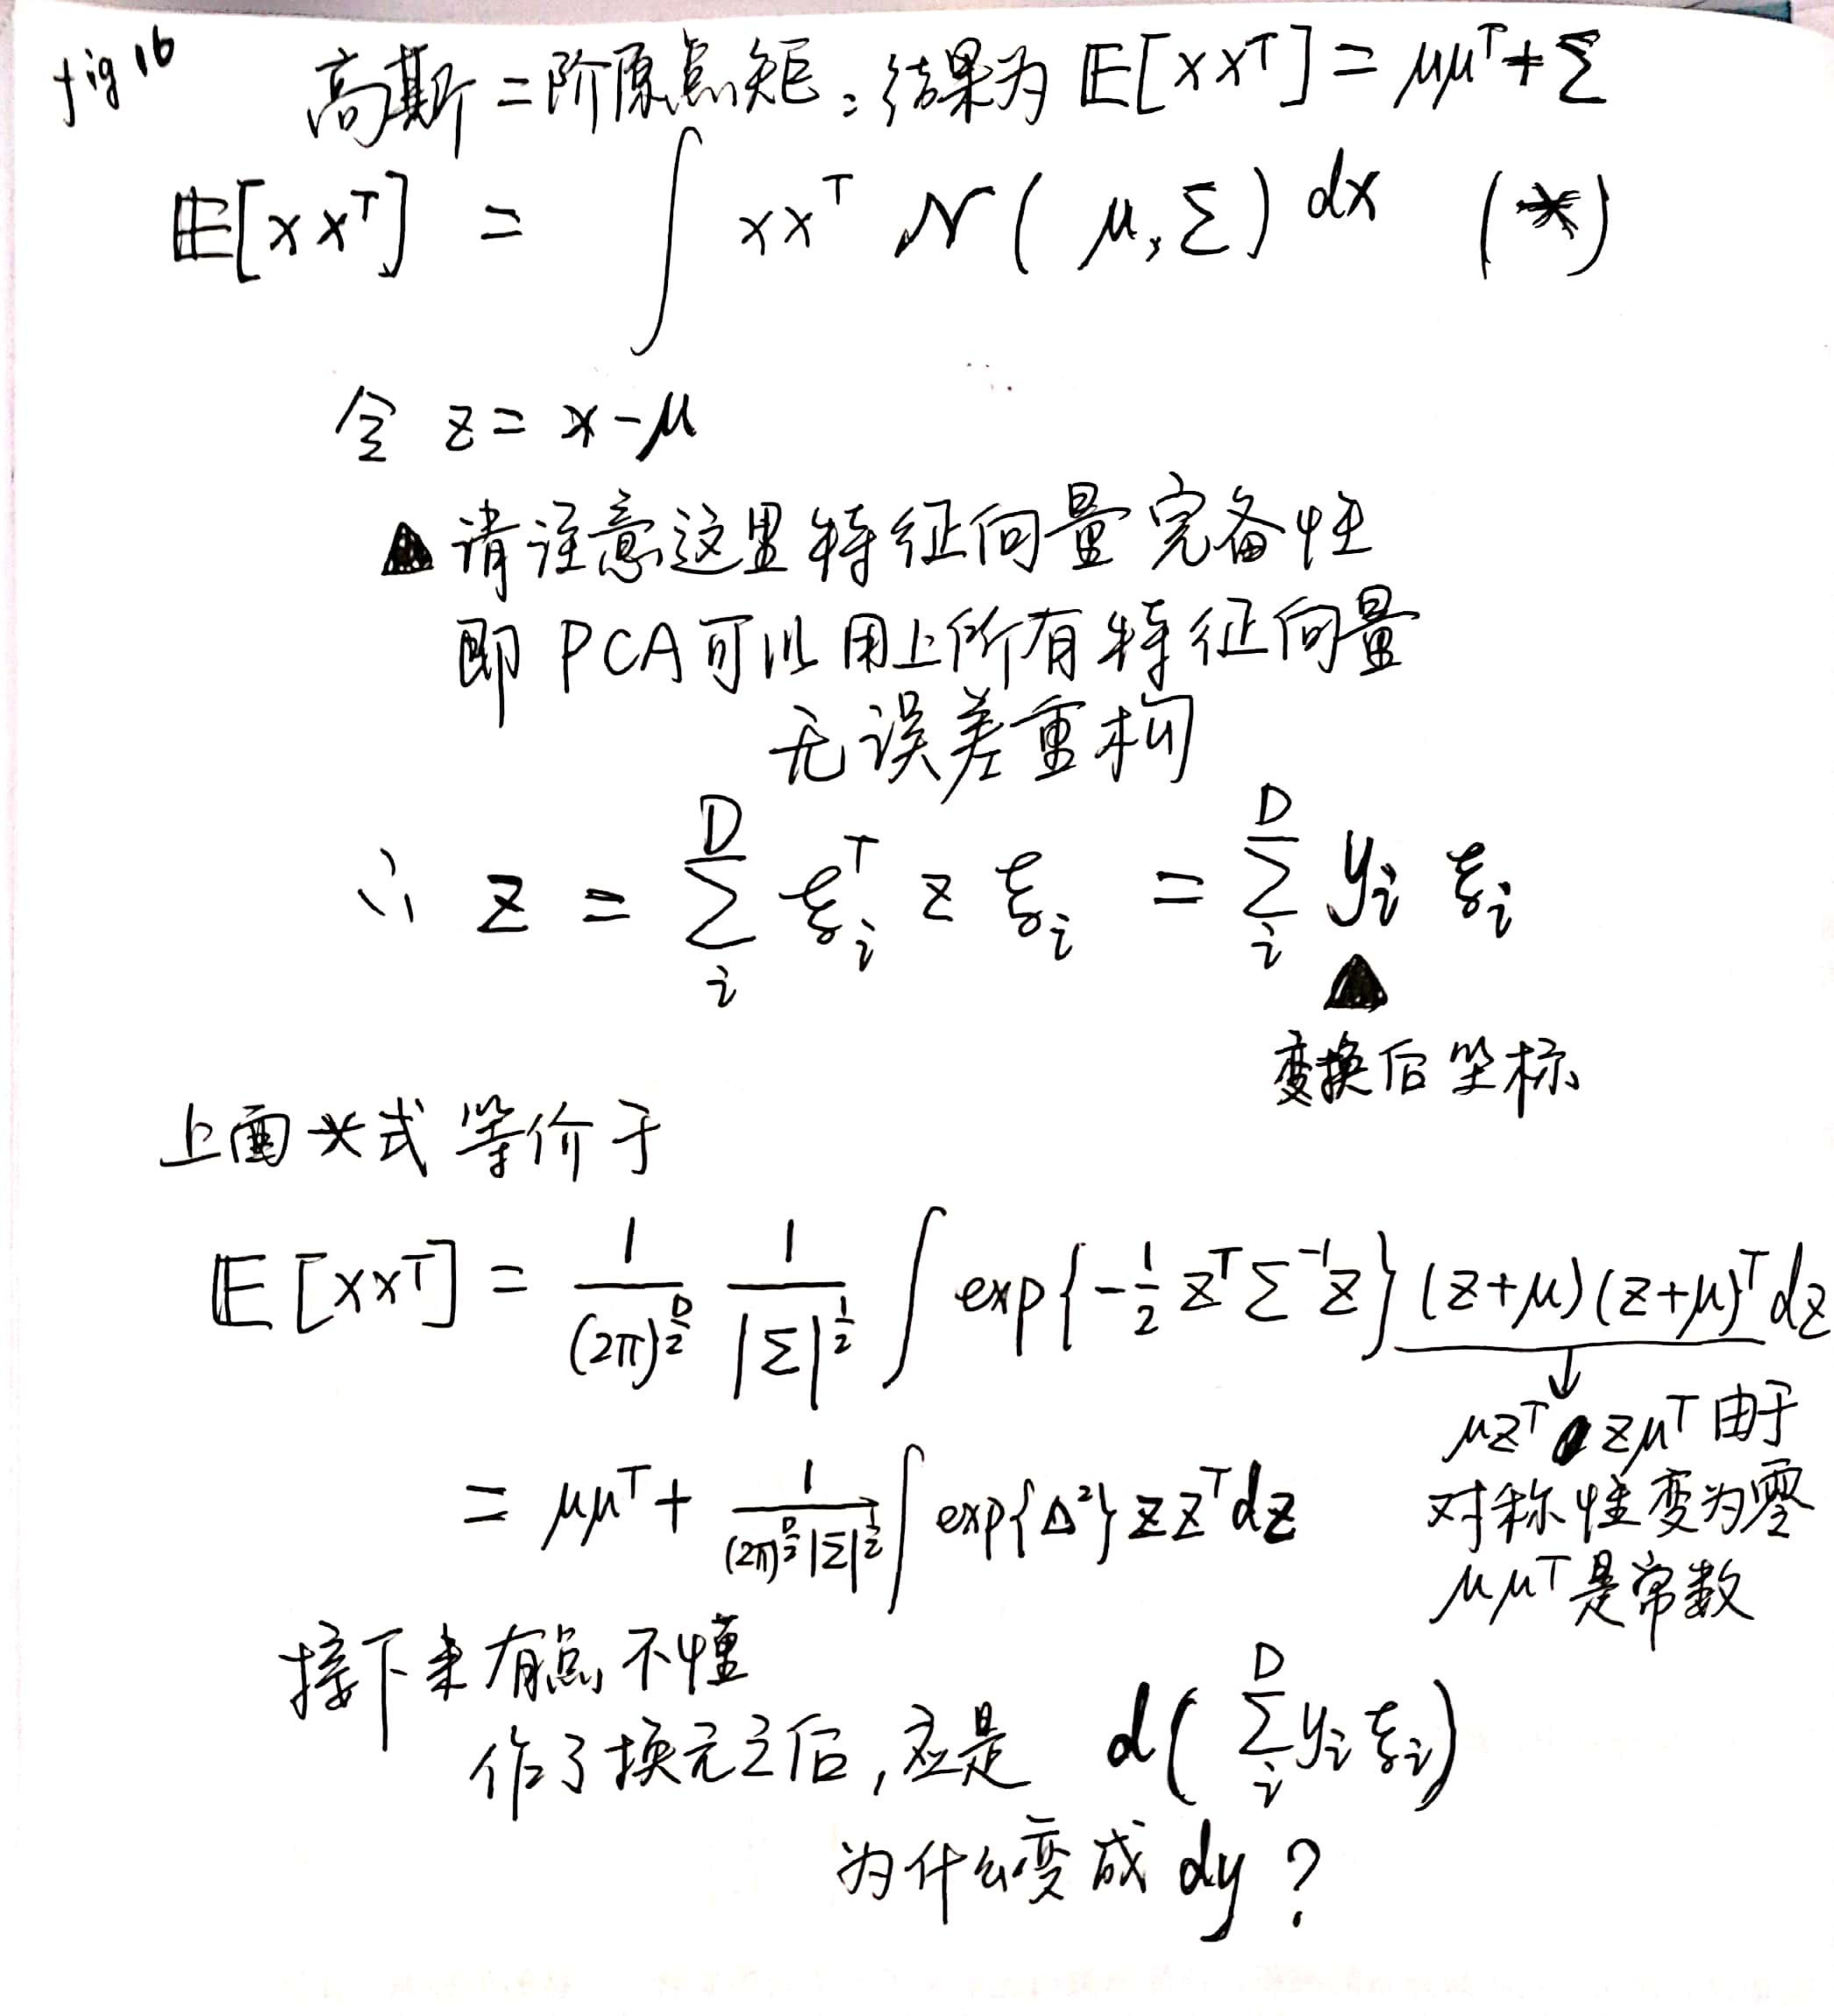 fig 16
高斯二阶原点矩：结果为 𝔼[xxᵀ] = μμᵀ+Σ
𝔼[xxᵀ] = ∫ xxᵀ N(μ,Σ) dx (*)
令 z = x-μ
▲请注意这里特征向量完备性
即 PCA 可以用上所有特征向量
无误差重构
∴ z = ∑_i^D ξ_iᵀ z ξ_i = ∑_i^D y_i ξ_i
▲
变换后坐标
上面*式等价于
𝔼[xxᵀ] = 1/(2π)^{D/2} 1/|Σ|^{1/2} ∫ exp{-1/2 zᵀΣ⁻¹z} (z+μ)(z+μ)ᵀdz
↓
μzᵀ zμᵀ 由于
= μμᵀ + 1/((2π)^{D/2}|Σ|^{1/2}) ∫ exp{Δ²} zzᵀdz
对称性变为零
μμᵀ是常数
接下来有点不懂
作了换元之后,应是 d(∑_i^D y_i ξ_i)
为什么变成 dy ?